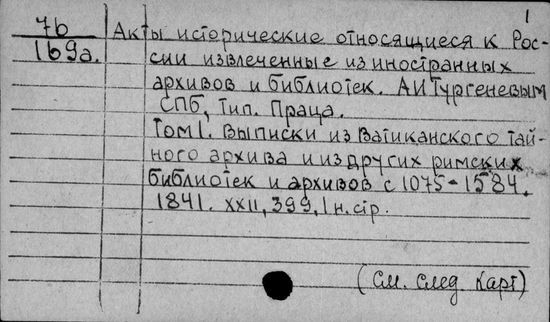 1
7b
169а.
Акты исторические относящиеся к Рос-
сии извлеченные из иностранных
архивов и библиотек. А И Тургеневым
СПб, Тип. Праца.
Том I. Выписки из Ватиканского тай-
ного архива и из других римских
библиотек и архивов с 1075-1584.
1841. XXII, 399, 1 н. стр.
(См. след. карт)